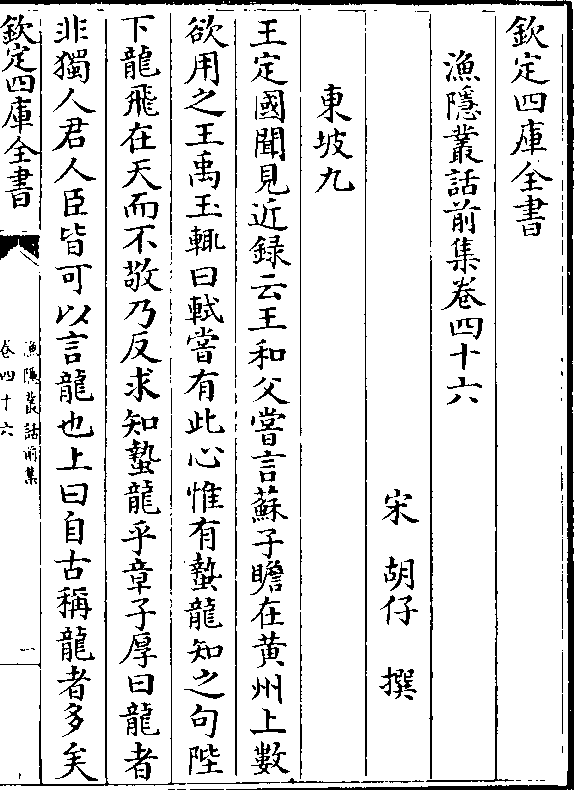 欽定四庫全書
漁隱叢話前集卷四十六
宋 胡仔 撰
東坡九
王定國聞見近録云王和父嘗言蘇子瞻在黄州上數
欲用之王禹玉輒曰軾嘗有此心惟有蟄龍知之句陛
下龍飛在天而不敬乃反求知蟄龍乎章子厚曰龍者
非獨人君人臣皆可以言龍也上曰自古稱龍者多矣
欽定四庫全書
漁隱叢話前集
卷四十六
一